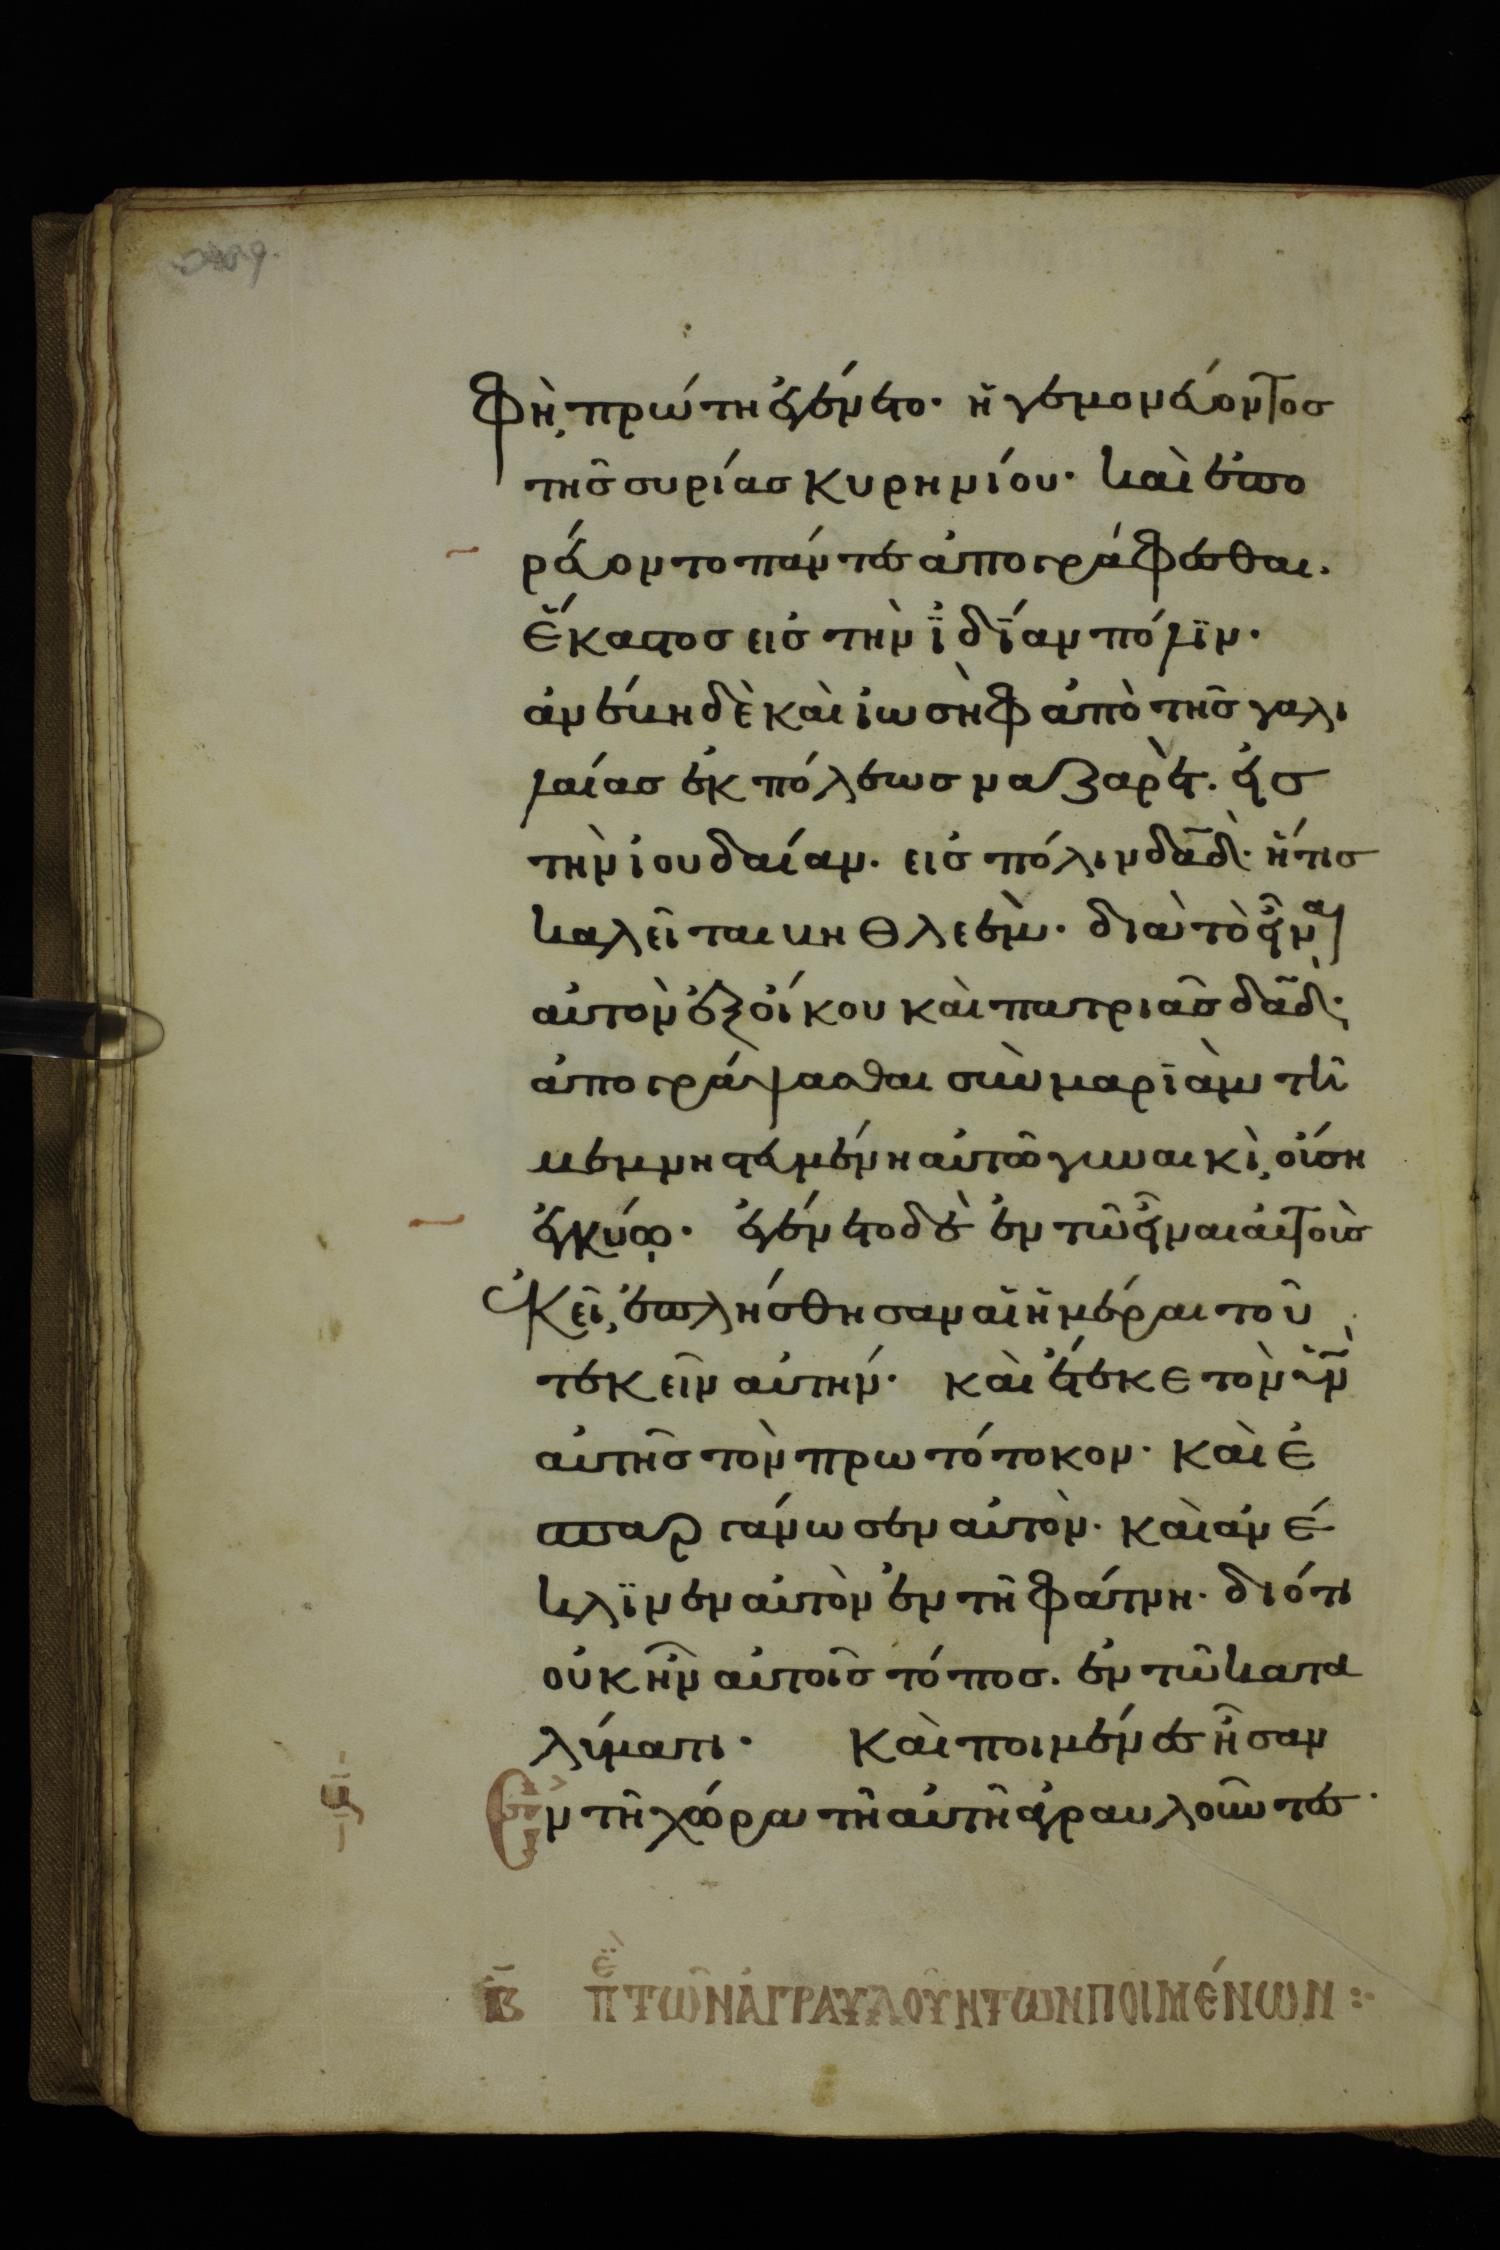 φὴ, πρώτη ἐγένετο· ἡγεμονέυοντος
τῆς συρίας κυρηνίου· καὶ ἐπο
ρέυοντο πάντες ἀπογράφεσθαι.
ἕκαστος εἰς τὴν ἰδΐαν πόλϊν·
ἀνέβη δὲ καὶ ἰωσὴφ ἀπὸ τῆς γαλι
λαίας ἐκ πόλεως ναζαρὲτ. εἰς
τὴν ἰουδαίαν. εἰς πόλιν δᾱδ̀· ἥτις
καλεῖται βηθλεὲμ· διὰ τὸ εἶναι
αὐτὸν ἐξ οἴκου καὶ πατριᾶς δᾱδ̀·
ἀπογράψασθαι σὺν μαρϊὰμ τῆ
μεμνηστευμένη αὐτῶ γυναικὶ, οὔση
ἐγκύω· ἐγένετο δὲ ἐν τῶ εἶναι αὐτοὺς
ἐκεῖ, ἐπλήσθησαν αἱ ἡμέραι τοῦ
τεκεῖν αὐτήν· καὶ ἔτεκε τὸν ὑ̄ν̄
αὐτῆς τὸν πρωτότοκον· καὶ ἐ
σπαργάνωσεν αὐτὸν· καὶ ἀνέ
κλϊνεν αὐτὸν ἐν τῆ φάτνη· διότι
οὐκ ἦν αὐτοῖς τόπος. ἐν τῶ κατα
λύματι· καὶ ποιμένες ἦσαν
ἐν τῆ χώρα τῆ αὐτῆ ἀγραυλοῦντες·
β̄ πὲ τῶν ἀγραυλούντων ποιμένων :·